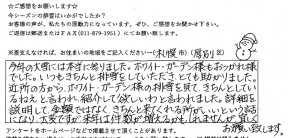 ☆ご感想をお願いします☆
今シーズンの排雪はいかがでしたか？
お客様の声が、私たちの原動力になっています。ぜひ、ご感想をお聞かせ下さい。
ご返信は郵送またはFAX(011-879-1951)にてお願い致します。
※差支えなければ、お住まいの地域をご記入ください→(札幌市)(厚別)区
今年の大雪には本当に参りました。ホワイト・ガーデン様もおつかれ様
でした。いつもきちんと排雪をしていただき とても助かりました。
近所の方から、ホワイト・ガーデン様の排雪を見て、きちんとしてい
るねえと言われ、紹介して欲しいわと言われました。詳細を
説明して、金額ではなく、きちんと来てくれる方がいいという話に
なり、大変ですが来年は件数が増えるかもしれませんが、宜しく
お願い致します。
アンケートをホームページなどで掲載させて頂くことがあります。